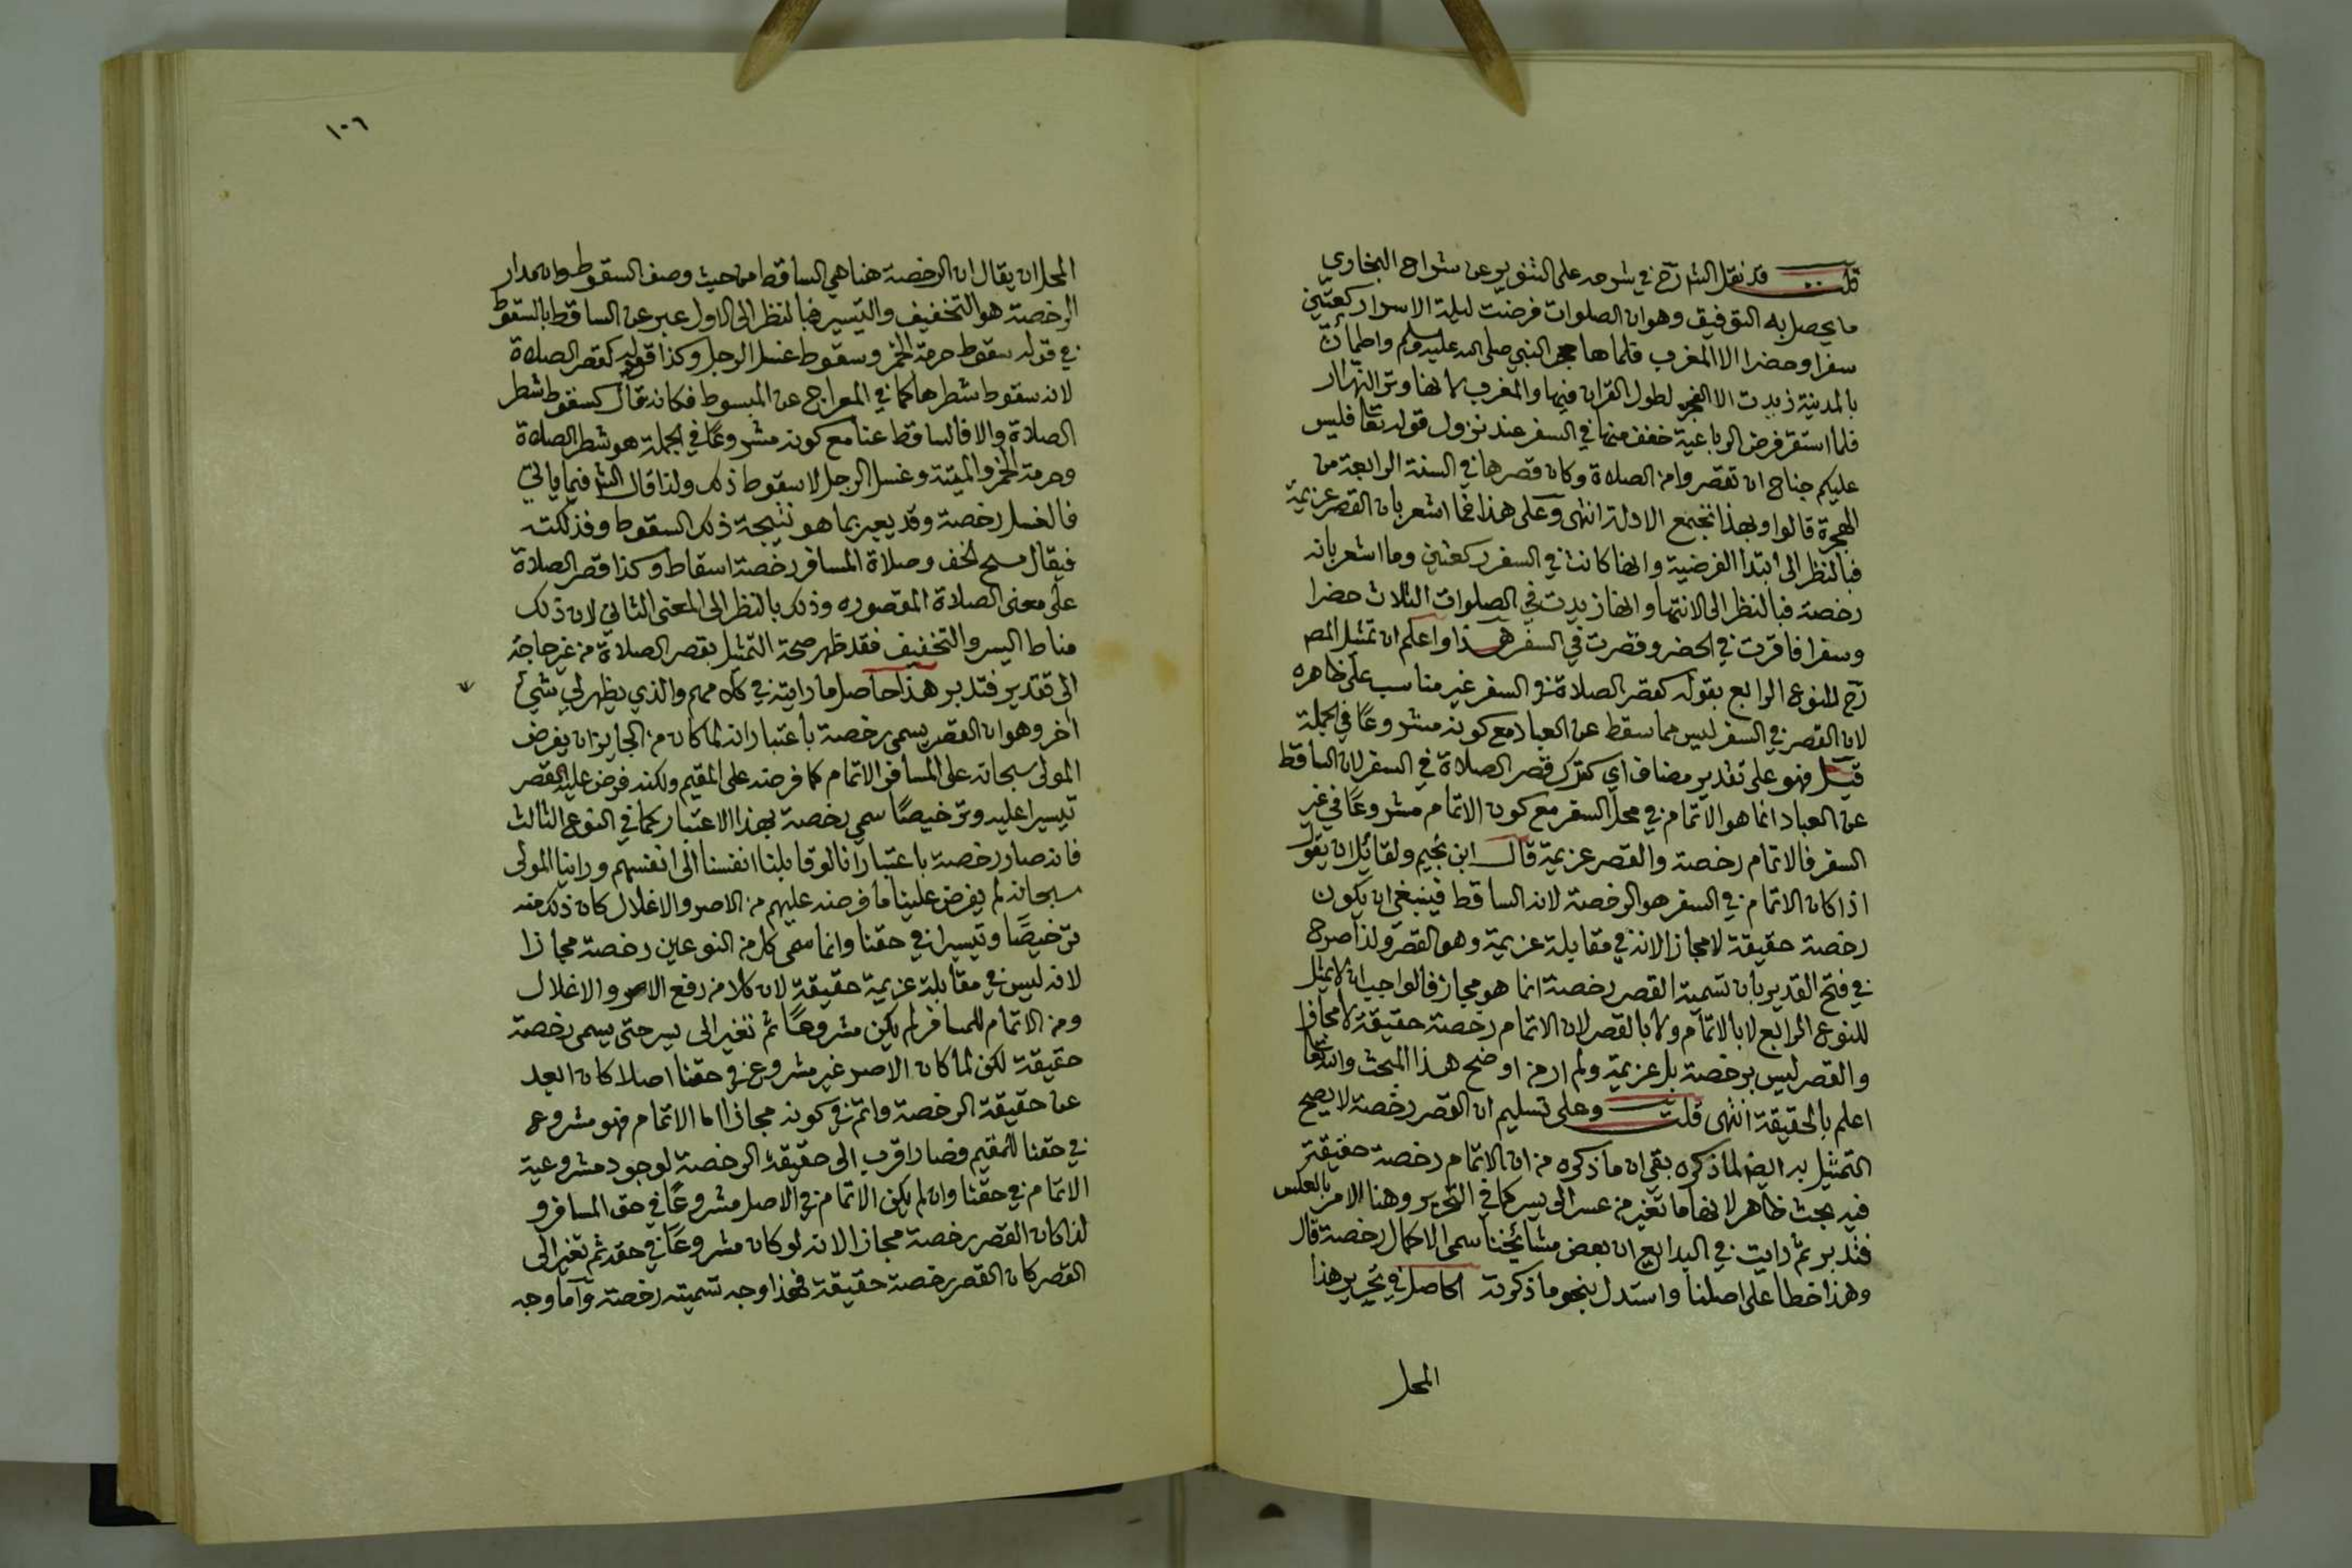 قلت قد نقل الشارح في شرحه على التنوير عن شراح البخاري
ما يحصل به التوفيق وهو ان الصلوات فرضت ليلة الاسرا ركعتين
سفرا وحضرا الا المغرب فلما هاجر النبي صلى الله عليه وسلم واطمأن
بالمدينة زيدت الا الفجر لطول القران فيها والمغرب لانها وتر النهار
فلما استقر فرض الرباعية خفف منها في السفر عند نزول قوله تعا فليس
عليكم جناح ان تقصروا من الصلاة وكان قصرها في السنة الرابعة من
الهجرة قالوا وبهذا تجتمع الادلة انتهى وعلى هذا فما اشعر بان القصر عزيمة
فبالنظر الى ابتدا الفرضية وانها كانت في السفر ركعتين وما اشعر بانه
رخصة فبالنظر الى الانتها وانها زيدت في الصلوات الثلاث حضرا
وسفرا فاقرت في الحضر وقصرت في السفر هذا واعلم ان تمثيل المص
رح للنوع الرابع بقوله كقصر الصلاة في السفر غير مناسب على ظاهره
لان القصر في السفر ليس مما سقط عن العباد مع كونه مشروعًا في الجملة
قيل فهو على تقدير مضاف اي كترك قصر الصلاة في السفر لان الساقط
عن العباد انما هو الاتمام في محل السفر مع كون الاتمام مشروعًا في غير
السفر فالاتمام رخصة والقصر عزيمة قال ابن نجيم ولقائل ان يقول
اذا كان الاتمام في السفر هو الرخصة لانه الساقط فينبغي ان يكون
رخصة حقيقة لا مجازا لانه في مقابلة عزيمة وهو القصر ولذا صرح
في فتح القدير بان تسمية القصر رخصة انما هو مجاز فالواجب ان لا يمثل
للنوع الرابع لا بالاتمام ولا بالقصر لان الاتمام رخصة حقيقة لا مجازا
والقصر ليس برخصة بل عزيمة ولم ار من اوضح هذا المبحث والله تعا
اعلم بالحقيقة انتهى قلت وعلى تسليم ان القصر رخصة لا يصح
التمثيل به ايضا لما ذكره بقي ان ما ذكره من ان الاتمام رخصة حقيقة
فيه بحث ظاهر لانها ما تغير من عسر الى يسر كما في التحرير وهنا الامر بالعكس
فتدبر ثم رايت في البدايع ان بعض مشائخنا سمى الاكمال رخصة قال
وهذا خطا على اصلنا واستدل بنحو ما ذكرته الحاصل في تحرير هذا
المحل
١٠٦
المحل ان يقال ان الرخصة هنا هي الساقط من حيث وصف السقوط وان مدار
الرخصة هو التخفيف والتيسير فبالنظر الى الاول عبر عن الساقط بالسقوط
في قوله سقوط حرمة الخمر وسقوط غسل الرجل وكذا قوله كقصر الصلاة
لانه سقوط شطرها كما في المعراج عن المبسوط فكانه قال كسقوط شطر
الصلاة والا فالساقط عنا مع كونه مشروعًا في الجملة هو شطر الصلاة
وحرمة الخمر والميتة وغسل الرجل لا سقوط ذلك ولذا قال الشر فيما ياتي
فالغسل رخصة وقد يعبر بما هو نتيجة ذلك السقوط وفذلكته
فيقال مسح الخف وصلاة المسافر رخصة اسقاط وكذا قصر الصلاة
على معنى الصلاة المقصوره وذلك بالنظر الى المعنى الثاني لان ذلك
مناط اليسر والتخفيف فقد ظهر صحة التمثيل بقصر الصلاة من غير حاجة
الى تقدير فتدبر هذا حاصل ما رايته في كلامهم والذي يظهر لي شيئ
اخر وهو ان القصر يسمى رخصة باعتبار انه لما كان من الجايز ان يفرض
المولى سبحانه على المسافر الاتمام كما فرضه على المقيم ولكنه فرض عليه القصر
تيسيرا عليه وترخيصًا سمي رخصة بهذا الاعتبار كما في النوع الثالث
فانه صار رخصة باعتبار انا لو قابلنا انفسنا الى انفسهم وراينا المولى
سبحانه لم يفرض علينا ما فرضه عليهم من الاصر والاغلال كان ذلك منه
ترخيصًا وتيسيرا في حقنا وانما سمى كل من النوعين رخصة مجازا
لانه ليس في مقابلة عزيمة حقيقة لان كلا من رفع الاصر والاغلال
ومن الاتمام للمسافر لم يكن مشروعًا ثم تغير الى يسر حتى يسمى رخصة
حقيقة لكن لما كان الاصر غير مشروع في حقنا اصلا كان ابعد
عن حقيقة الرخصة واتم في كونه مجازا اما الاتمام فهو مشروع
في حقنا للمقيم فصار اقرب الى حقيقة الرخصة لوجود مشروعية
الاتمام في حقنا وان لم يكن الاتمام في الاصل مشروعًا في حق المسافر و
لذا كان القصر رخصة مجازا لانه لو كان مشروعًا في حقه ثم تغير الى
القصر كان القصر رخصة حقيقة فهذا وجه تسميته رخصة واما وجه